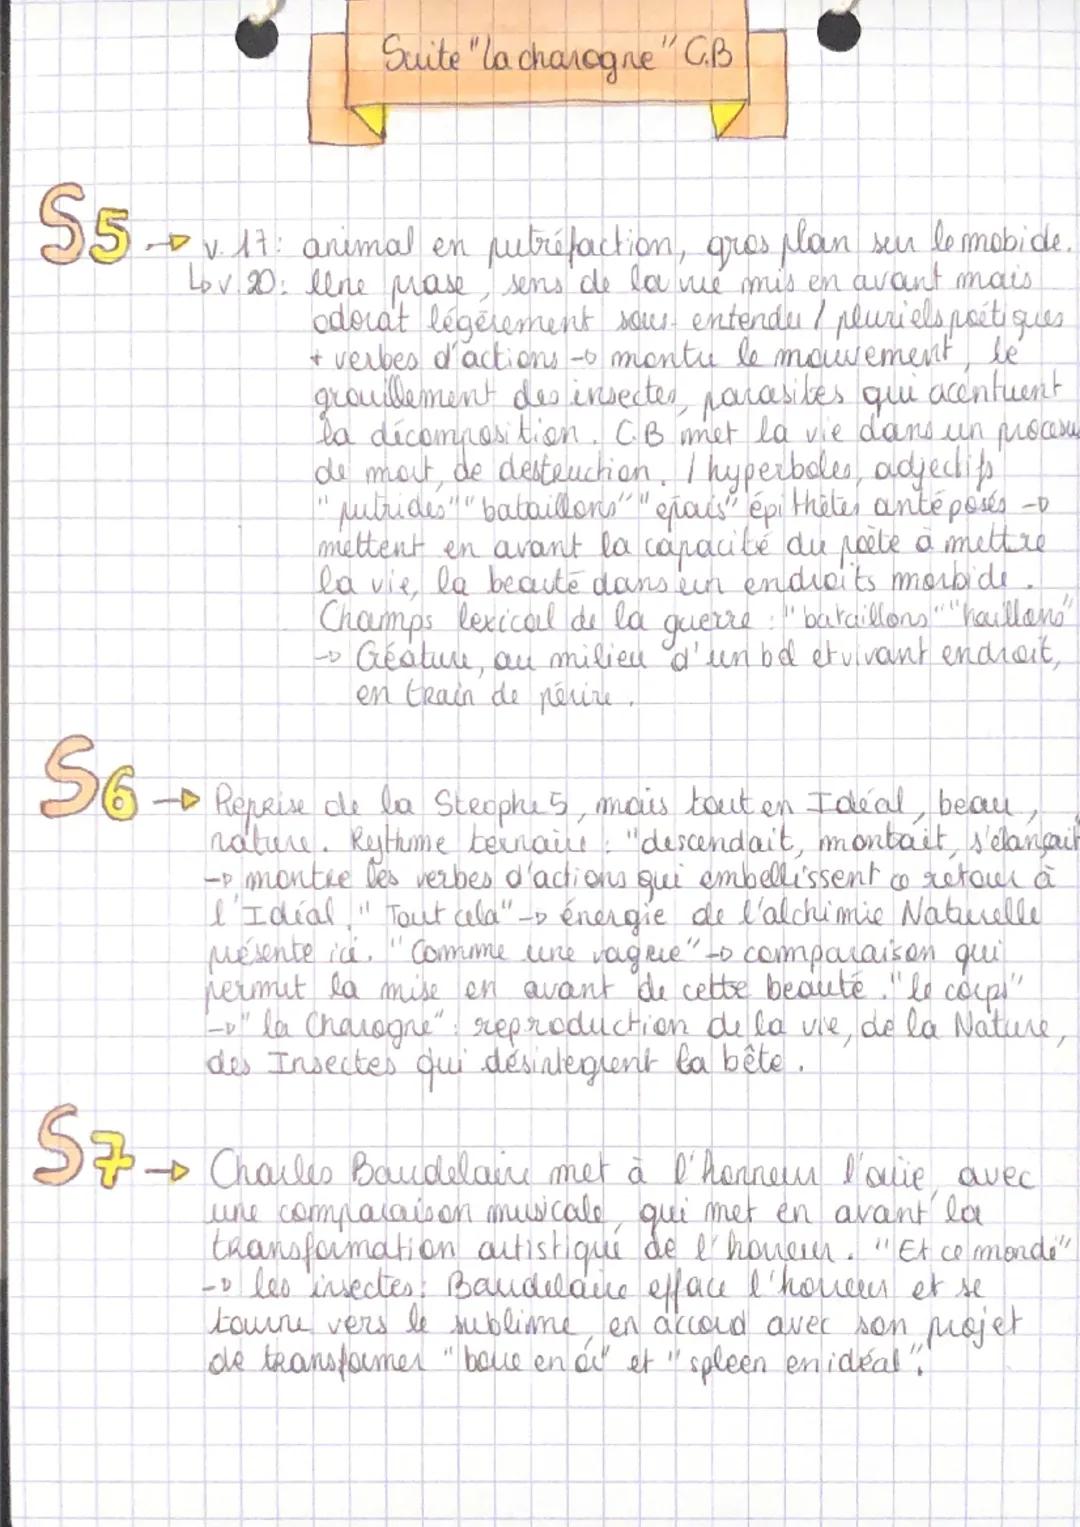 Suite "La charogne" C.B
S5 → v.17: animal en putréfaction, gros plan sur le mobide.
↳ v.20: Une prase, sens de la vue mis en avant mais
odorat légèrement sous-entendu / pluriels poétiques
+ verbes d'actions → montre le mouvement, le
grouillement des insectes, parasites qui acentuent
la décomposition. C.B met la vie dans un procesus
de mort, de destruction. / hyperboles, adjectifs
"putrides" "bataillons" "épais" épithètes antéposés →
mettent en avant la capacité du poète à mettre
la vie, la beauté dans un endroits morbide.
Champs lexical de la guerre : "bataillons" "haillons"
→ Créature, au milieu d'un bel et vivant endroit,
en train de périre.
S6 → Reprise de la Strophe 5, mais tout en Idéal, beau,
nature. Rythme ternaire : "descendait, montait, s'élançait
→ montre les verbes d'actions qui embellissent ce retour à
l'Idéal. "Tout cela" → énergie de l'alchimie Naturelle
présente ici. "Comme une vague" → comparaison qui
permet la mise en avant de cette beauté. "le corps"
→ "la Charogne" : reproduction de la vie, de la Nature,
des Insectes qui désintegrent la bête.
S7 → Charles Baudelaire met à l'honneur l'ouïe, avec
une comparaison musicale, qui met en avant la
transformation artistique de l'horreur. "Et ce monde"
→ les insectes : Baudelaire efface l'horreur et se
tourne vers le sublime, en accord avec son projet
de transformer "boue en or" et "spleen en idéal".